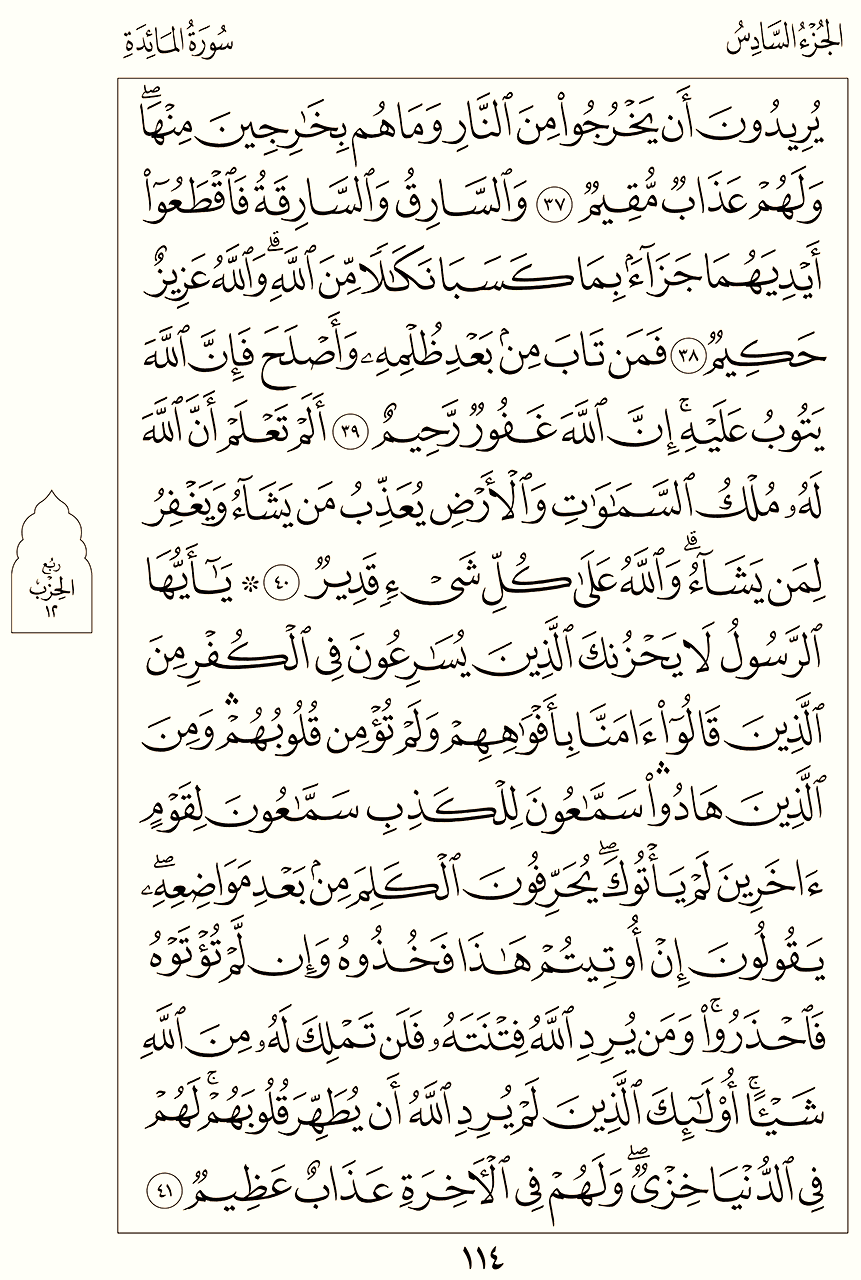 الجُزْءُ السَّادِسُ
سُورَةُ المَائِدَةِ
يُرِيدُونَ أَن يَخْرُجُوا۟ مِنَ ٱلنَّارِ وَمَا هُم بِخَـٰرِجِينَ مِنْهَا ۖ
وَلَهُمْ عَذَابٌ مُّقِيمٌ ٣٧ وَٱلسَّارِقُ وَٱلسَّارِقَةُ فَٱقْطَعُوٓا۟
أَيْدِيَهُمَا جَزَآءًۢ بِمَا كَسَبَا نَكَـٰلًا مِّنَ ٱللَّهِ ۗ وَٱللَّهُ عَزِيزٌ
حَكِيمٌ ٣٨ فَمَن تَابَ مِنۢ بَعْدِ ظُلْمِهِۦ وَأَصْلَحَ فَإِنَّ ٱللَّهَ
يَتُوبُ عَلَيْهِ ۚ إِنَّ ٱللَّهَ غَفُورٌ رَّحِيمٌ ٣٩ أَلَمْ تَعْلَمْ أَنَّ ٱللَّهَ
لَهُۥ مُلْكُ ٱلسَّمَـٰوَٰتِ وَٱلْأَرْضِ يُعَذِّبُ مَن يَشَآءُ وَيَغْفِرُ
لِمَن يَشَآءُ ۗ وَٱللَّهُ عَلَىٰ كُلِّ شَىْءٍ قَدِيرٌ ٤٠ ۞ يَـٰٓأَيُّهَا
ٱلرَّسُولُ لَا يَحْزُنكَ ٱلَّذِينَ يُسَـٰرِعُونَ فِى ٱلْكُفْرِ مِنَ
ٱلَّذِينَ قَالُوٓا۟ ءَامَنَّا بِأَفْوَٰهِهِمْ وَلَمْ تُؤْمِن قُلُوبُهُمْ ۛ وَمِنَ
ٱلَّذِينَ هَادُوا۟ ۛ سَمَّـٰعُونَ لِلْكَذِبِ سَمَّـٰعُونَ لِقَوْمٍ
ءَاخَرِينَ لَمْ يَأْتُوكَ ۖ يُحَرِّفُونَ ٱلْكَلِمَ مِنۢ بَعْدِ مَوَاضِعِهِۦ ۖ
يَقُولُونَ إِنْ أُوتِيتُمْ هَـٰذَا فَخُذُوهُ وَإِن لَّمْ تُؤْتَوْهُ
فَٱحْذَرُوا۟ ۚ وَمَن يُرِدِ ٱللَّهُ فِتْنَتَهُۥ فَلَن تَمْلِكَ لَهُۥ مِنَ ٱللَّهِ
شَيْـًٔا ۚ أُو۟لَـٰٓئِكَ ٱلَّذِينَ لَمْ يُرِدِ ٱللَّهُ أَن يُطَهِّرَ قُلُوبَهُمْ ۚ لَهُمْ
فِى ٱلدُّنْيَا خِزْىٌ ۖ وَلَهُمْ فِى ٱلْـَٔاخِرَةِ عَذَابٌ عَظِيمٌ ٤١
رُبُع
الحِزْبِ
١٢
١١٤